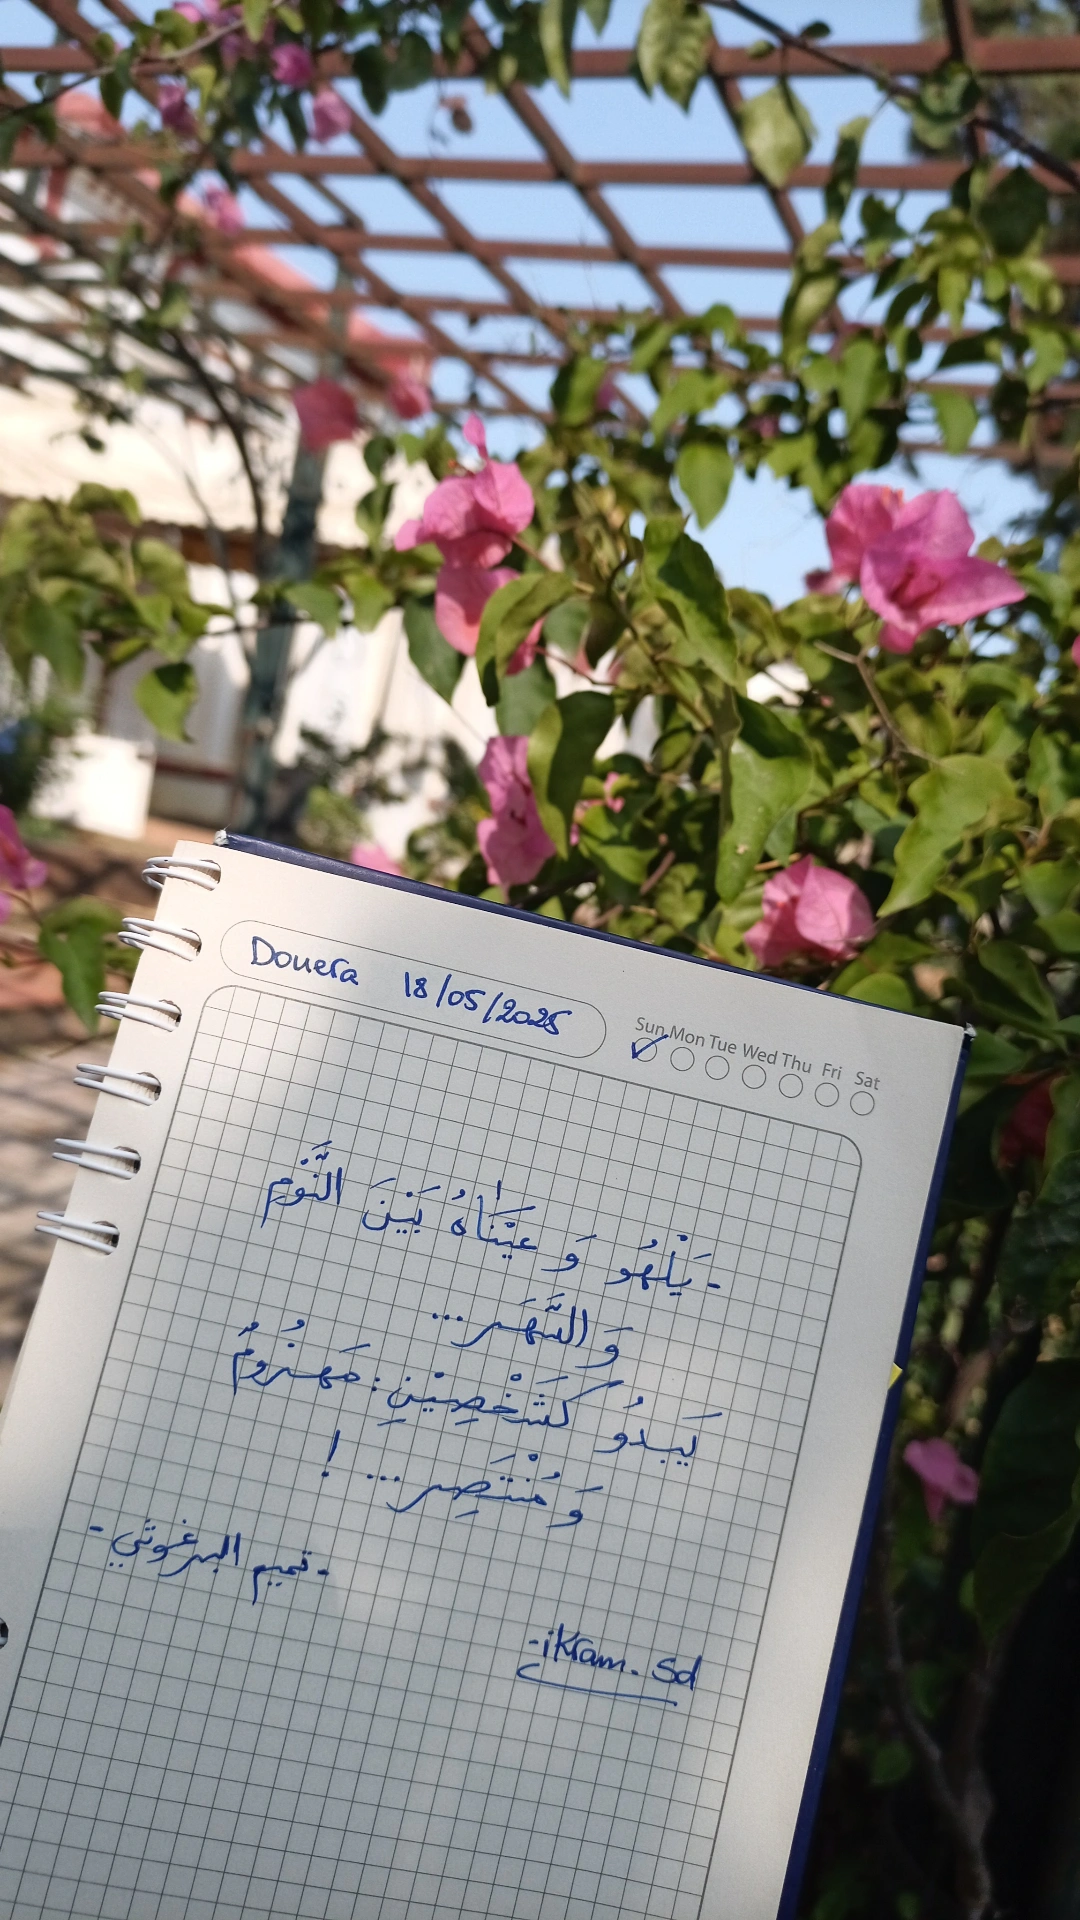 Douera 18/05/2025
Sun Mon Tue Wed Thu Fri Sat
- يَلْهُو وَ عَيْنَاهُ بَيْنَ النَّوْمِ
وَ السَّهَر...
يَبدُو كَشَخْصِيْنِ: مَهزُومٌ
وَ مُنْتَصِر... !
- تميم البرغوثي -
-ikram. Sd